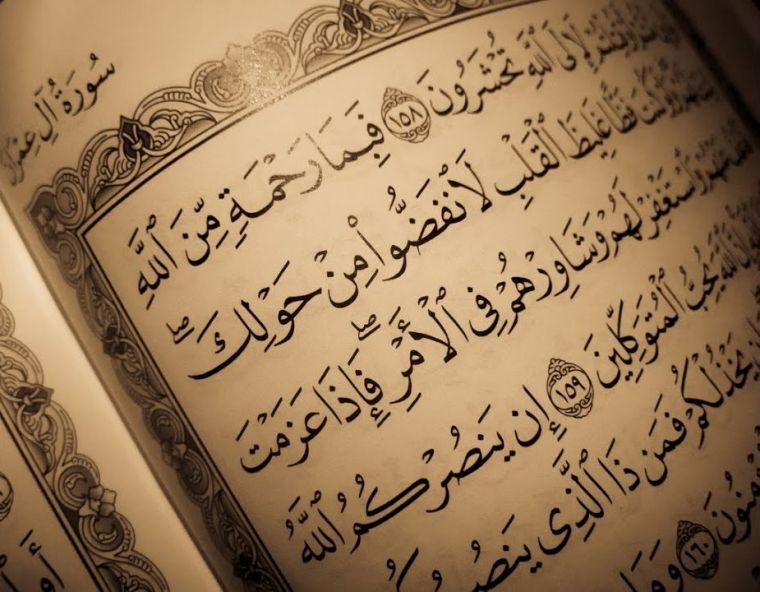 سُورَةُ آلِ عِمْرَ
لَإِلَى ٱللَّهِ تُحْشَرُونَ ١٥٨ فَبِمَا رَحْمَةٍ مِّنَ ٱللَّهِ
كُنتَ فَظًّا غَلِيظَ ٱلْقَلْبِ لَٱنفَضُّوا۟ مِنْ حَوْلِكَ ۖ
وَٱسْتَغْفِرْ لَهُمْ وَشَاوِرْهُمْ فِى ٱلْأَمْرِ ۖ فَإِذَا عَزَمْتَ
إِنَّ ٱللَّهَ يُحِبُّ ٱلْمُتَوَكِّلِينَ ١٥٩ إِن يَنصُرْكُمُ ٱللَّهُ
يَخْذُلْكُمْ فَمَن ذَا ٱلَّذِى يَنصُرُكُ
١٦٠ وَمَا